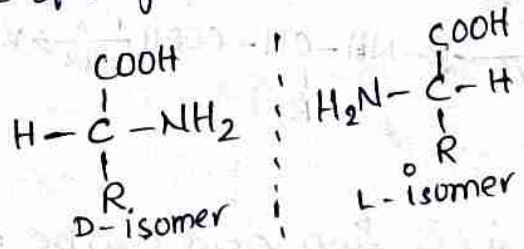 COOH
H-C-NH2
R
D-isomer
COOH
H2N-C-H
R
L-isomer